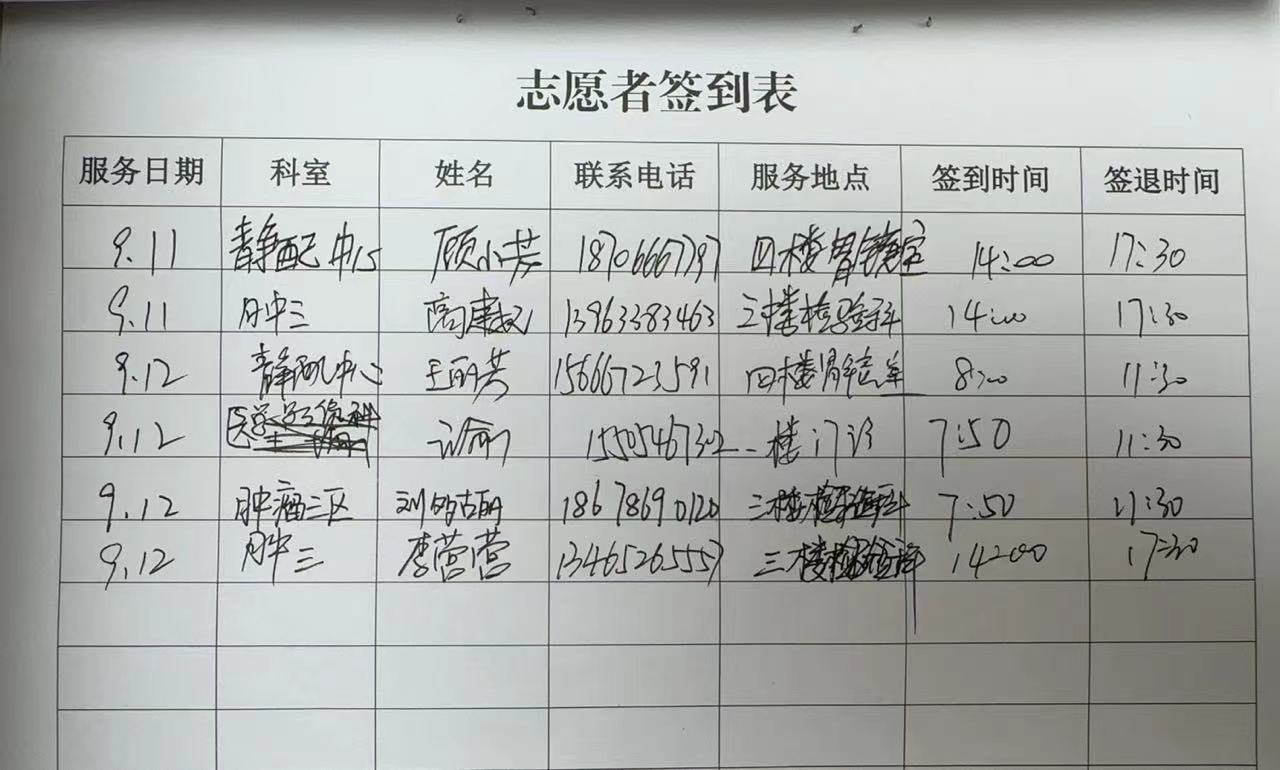 志愿者签到表
服务日期 科室 姓名 联系电话 服务地点 签到时间 签退时间
9.11 静配中心 顾小芳 18706667797 四楼胃镜室 14:00 17:30
9.11 肿三 高康 13963383463 三楼检验科 14:00 17:30
9.12 静配中心 王丽芳 15666723591 四楼胃镜室 8:00 11:30
9.12 医学 1550546732 一楼门诊 7:50 11:30
9.12 肿瘤三区 刘 18678690120 三楼检验科 7:50 11:30
9.12 肿三 李营营 13465265557 三楼检验科 14:00 17:30